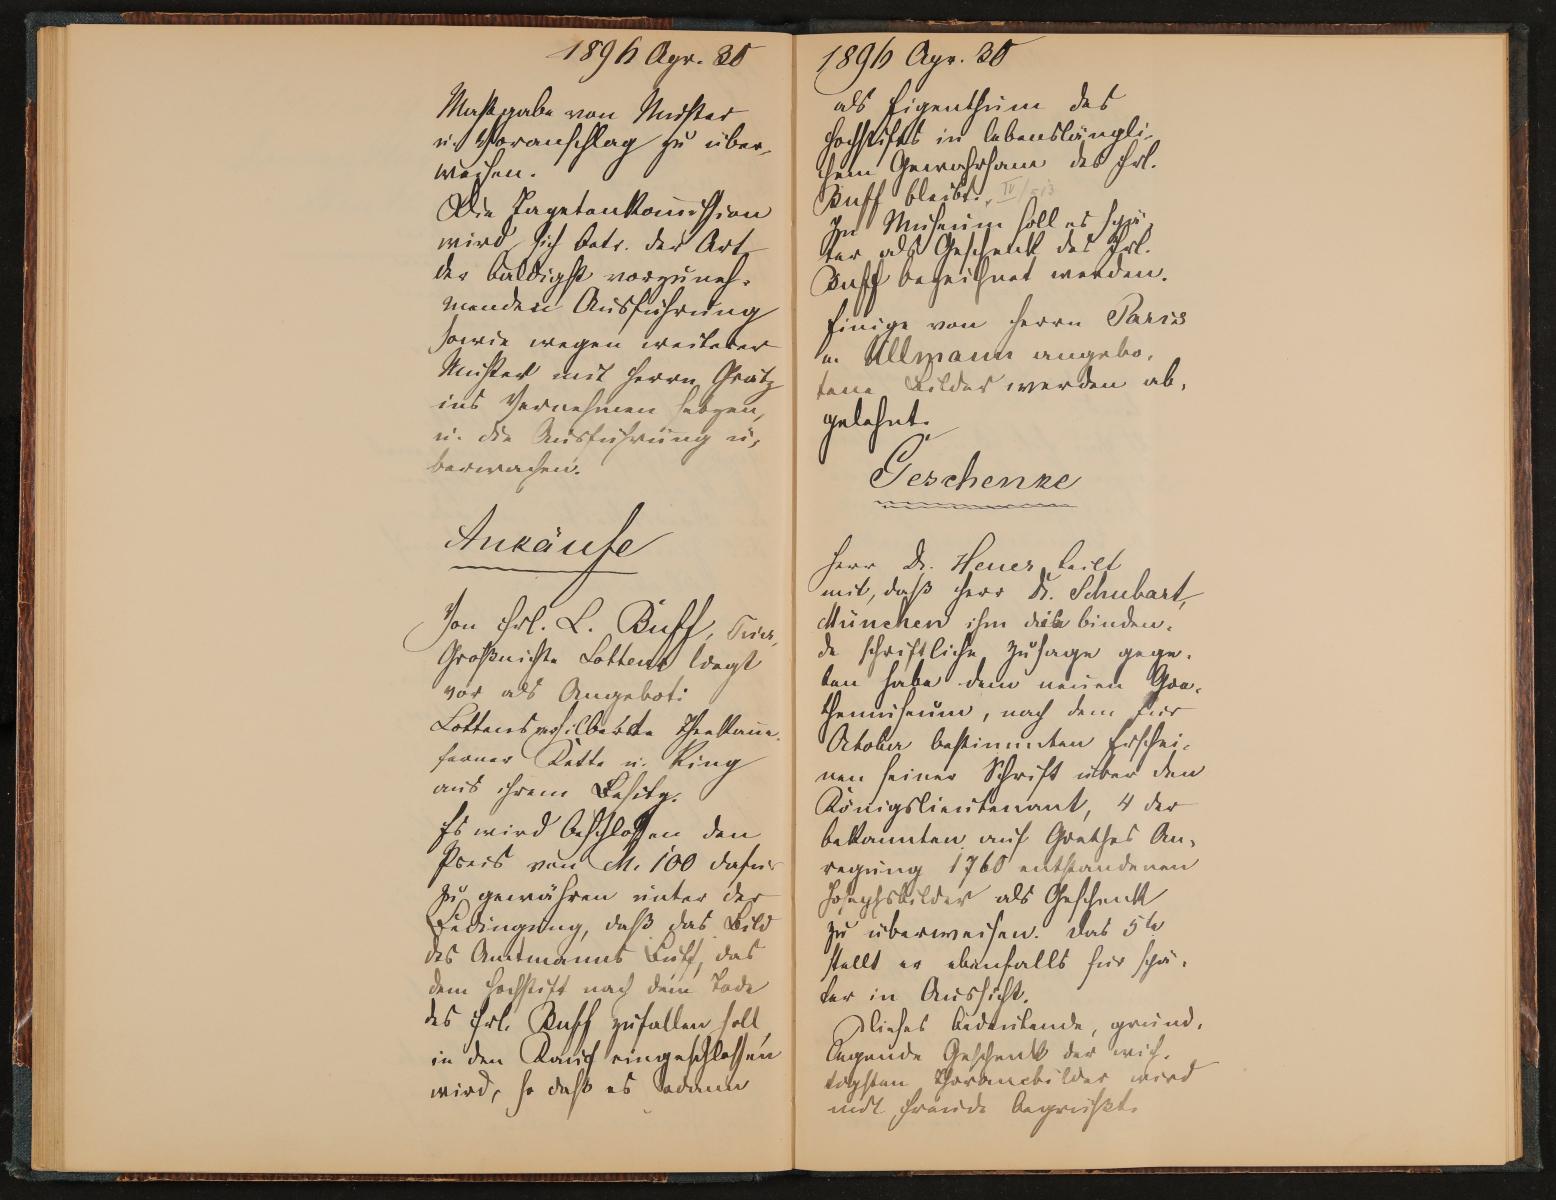 1896 Apr. 30
Maßgabe von Muster
u. Voranschlag zu über-
weisen.
Die Tapetenkommission
wird sich betr. der Art
der baldigst vorzuneh-
menden Ausführung
sowie wegen weiterer
Muster mit Herrn Grätz
ins Vernehmen setzen,
u. die Ausführung ü-
berwachen.
Ankäufe
Von Frl. L. Buff, Trier,
Großnichte Lottens liegt
vor als Angebot:
Lottens versilberte Theekanne
ferner Kette u. Ring
aus ihrem Besitz.
Es wird beschlossen den
Preis von M. 100 dafür
zu gewähren unter der
Bedingung, daß das Bild
des Amtmanns Buff, das
dem Hochstift nach dem Tode
des Frl. Buff zufallen soll
in den Kauf eingeschlossen
wird, so daß es sodann
1896 Apr. 30
als Eigenthum des
Hochstifts in lebenslängli-
chem Gewahrsam des Frl.
Buff bleibt.
Im Museum soll es spä-
ter als Geschenk des Frl.
Buff bezeichnet werden.
Einige von Herrn Paris
u. Ullmann angebo-
tene Bilder werden ab-
gelehnt.
Geschenke
Herr Dr. Heuer teilt
mit, daß Herr Dr. Schubart,
München ihm die binden-
de schriftliche Zusage gege-
ben habe dem neuen Goe-
themuseum, nach dem für
October bestimmten Erschei-
nen seiner Schrift über den
Königslieutenant, 4 der
bekannten auf Goethes An-
regung 1760 entstandenen
Josephsbilder als Geschenk
zu überweisen. Das 5te
stellt er ebenfalls für spä-
ter in Aussicht.
Dieses bedeutende, grund-
legende Geschenk der wich-
tigsten Thorancbilder wird
mit Freude begrüßt.